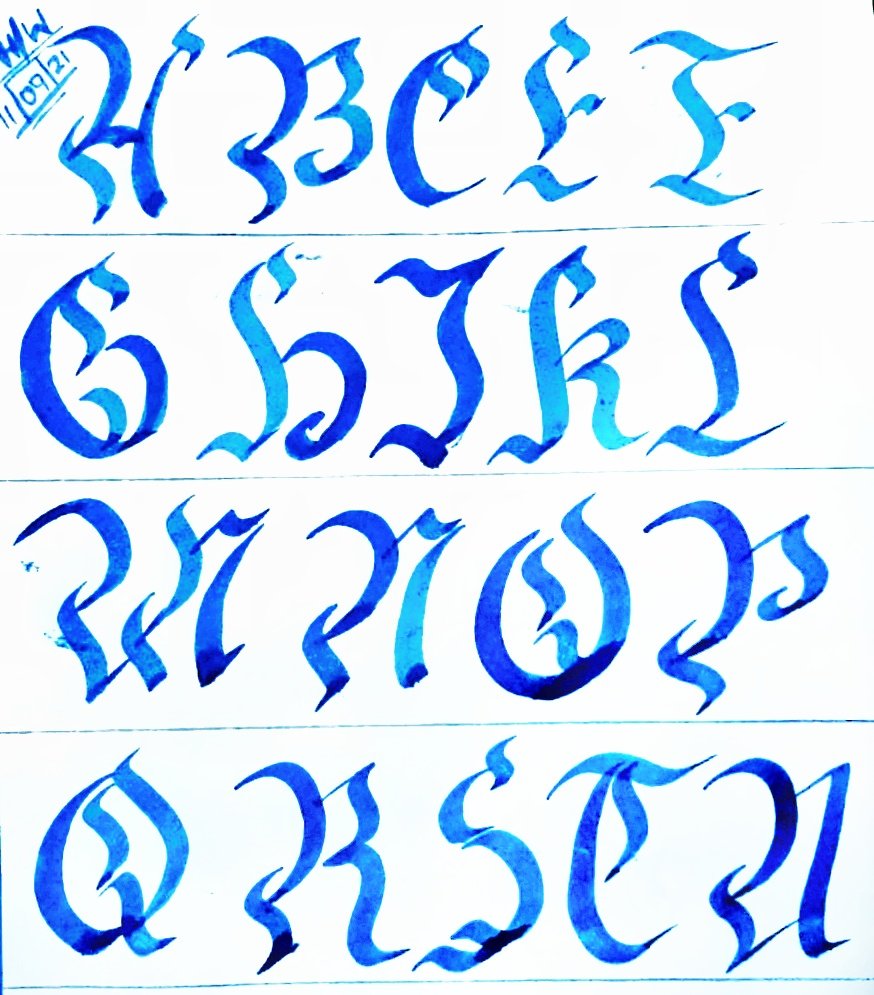 H/W
11/09/21
A B C E F
G H I K L
M N O P
Q R S T U